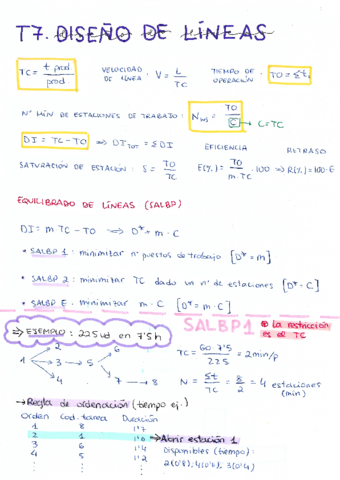 T7. DISEÑO DE LÍNEAS
TC = t prod. / prod.
VELOCIDAD DE LÍNEA : V = L / TC
TIEMPO DE OPERACIÓN : TO = Σ ti
Nº MÍN DE ESTACIONES DE TRABAJO : Nws = TO / C → C = TC
DI = TC - TO ⇒ DI TOT = Σ DI
EFICIENCIA
RETRASO
SATURACIÓN DE ESTACIÓN : S = TO / TC
E(%) = TO / m·TC · 100 ⇒ R(%) = 100 - E
EQUILIBRADO DE LÍNEAS (SALBP)
DI = m TC - TO ⇒ D* = m · C
• SALBP 1 : minimizar nº puestos de trabajo [D* = m]
• SALBP 2 : minimizar TC dado un nº de estaciones [D* = C]
• SALBP E : minimizar m · C [D* = m · C]
⇒ EJEMPLO : 225 ud en 7'5 h
SALBP1
⊛ La restricción es el TC
1 2 3 4 5 6 7 8
TC = 60 · 7'5 / 225 = 2 min/p
N = Σt / TC = 8 / 2 = 4 estaciones (min)
→ Regla de ordenación (tiempo ej.)
Orden Cod. tarea Duración
1 8 1'7
2 1 1'6 → Abrir estación 1
3 6 1'4 Disponibles (tiempo) :
4 5 1'2 2(0'8); 4(0'4), 3(0'4)